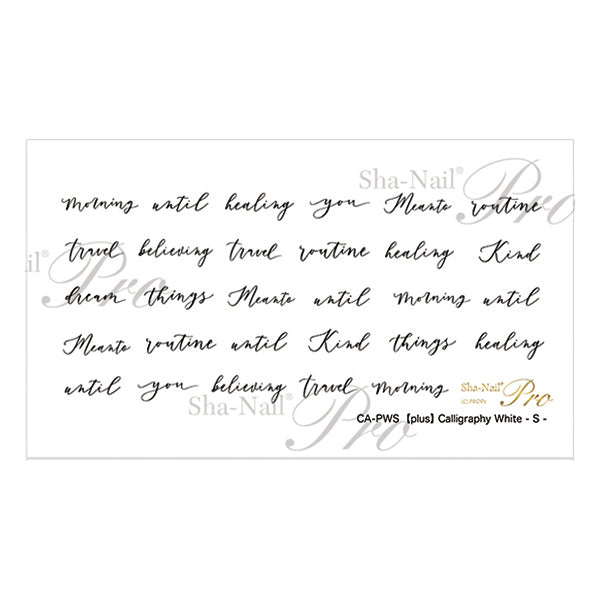 Sha-Nail® Pro
morning until healing you Meanto routine
travel believing travel routine healing Kind
ail® Pro
dream things Meanto until morning until
Meanto routine until Kind things healing
until you believing travel morning
Sha-Nail® Pro
Sha-Nail® Pro
CA-PWS 【plus】 Calligraphy White - S -